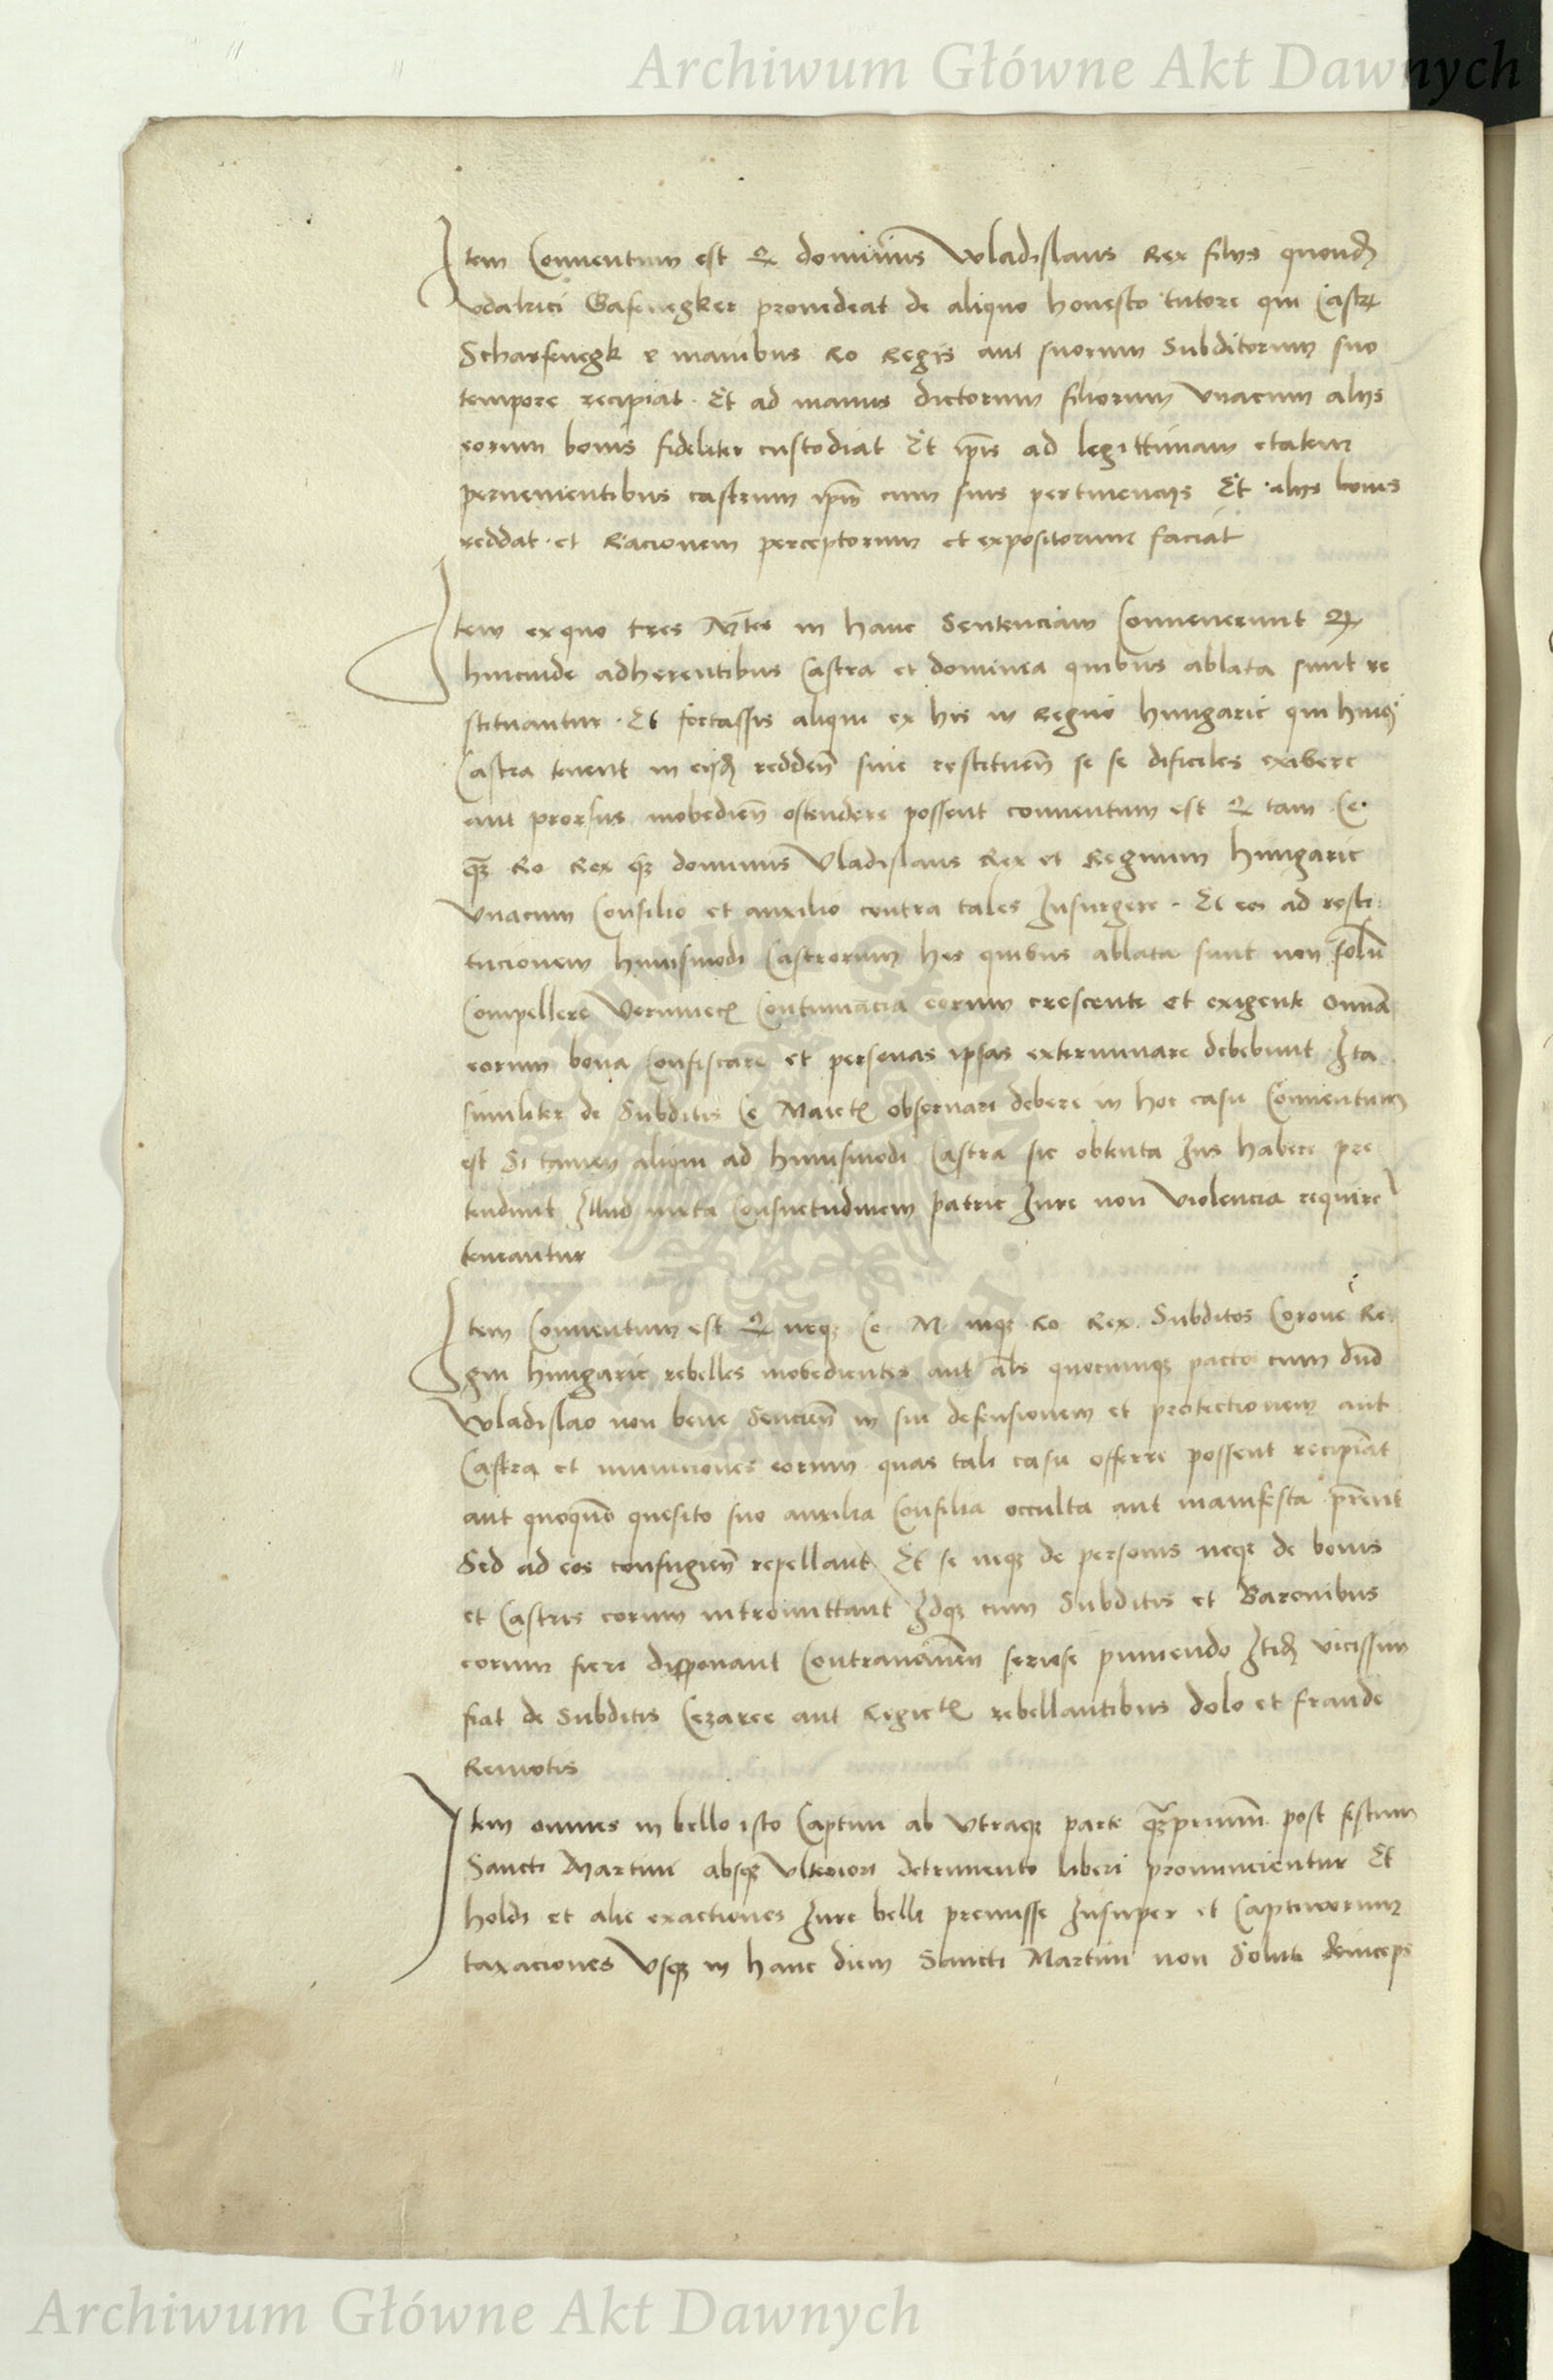 Archiwum Główne Akt Dawnych
Item Conventum est ꝙ dominus Wladislaus Rex filijs quondā
Vdalrici Gafenegker provideat de aliquo honesto tutore qui Castrū
Scharfenegk e manibus Ro Regis aut suorum Subditorum suo
tempore recipiat. Et ad manus dictorum filiorum Vnacum alijs
eorum bonis fideliter custodiat Et ip̄is ad legittimam etatem
pervenientibus castrum ip̄m cum suis pertinencijs Et alijs bonis
reddat. et Racionem perceptorum et expositorum faciat
Item ex quo tres M̄tes in hanc Sentenciam Convenerunt ꝙ
hincinde adherentibus Castra et dominia quibus ablata sunt re
stituantur. Et fortassis aliqui ex his in Regno Hungarie qui huiꝰ
Castra tenent in eisdē redden̄ sive restituen̄ se se dificiles exibere
aut prorsus inobedien̄ ostendere possent conventum est ꝙ tam Ce.
qꝫ Ro Rex qꝫ dominus Vladislaus Rex et Regnum Hungarie
Vnacum Consilio et auxilio contra tales Insurgere. Et eos ad resti
tucionem huiusmodi Castrorum hijs quibus ablata sunt non solū
Compellere Verumecꝫ Contumacia eorum crescente et exigente omīa
eorum bona Confiscare et personas ipsas exterminare debebunt Ita
similiter de Subditis Ce Maietꝫ observari debere in hoc casu Conventum
est Si tamen aliqui ad huiusmodi Castra sic obtenta Jus habere pre
tendunt Illud iuxta Consuetudinem patrie Jure non Violencia requirē
teneantur
Item Conventum est ꝙ neqꝫ Ce M. neqꝫ Ro Rex Subditos Corone Re
gni Hungarie rebelles inobedientes aut al̄s quocumqꝫ pacto cum dn̄o
Wladislao non bene Sencien̄ in sui defensionem et protectionem aut
Castra et municiones eorum quas tali casu offerre possent recipiāt
aut quoquō quesito suo auxilia Consilia occulta aut manifesta p̄rent
Sed ad eos confugien̄ repellant Et se neqꝫ de personis neqꝫ de bonis
et Castris eorum intromittant Idqꝫ cum Subditis et Baronibus
eorum fieri disponant Contravenien̄ seriose puniendo Itidē vicissim
fiat de Subditis Cezaree aut Regietꝫ rebellantibus dolo et fraude
Remotis
Item omnes in bello isto Captivi ab Vtraqꝫ parte qꝫprimum post festum
Sancti Martini absqꝫ Vlteriori detrimento liberi pronuncientur Et
holdi et alie exactiones Jure belli premisse Insuper et Captivorum
taxaciones Vsqꝫ in hanc diem Sancti Martini non Solute deinceps
Archiwum Główne Akt Dawnych